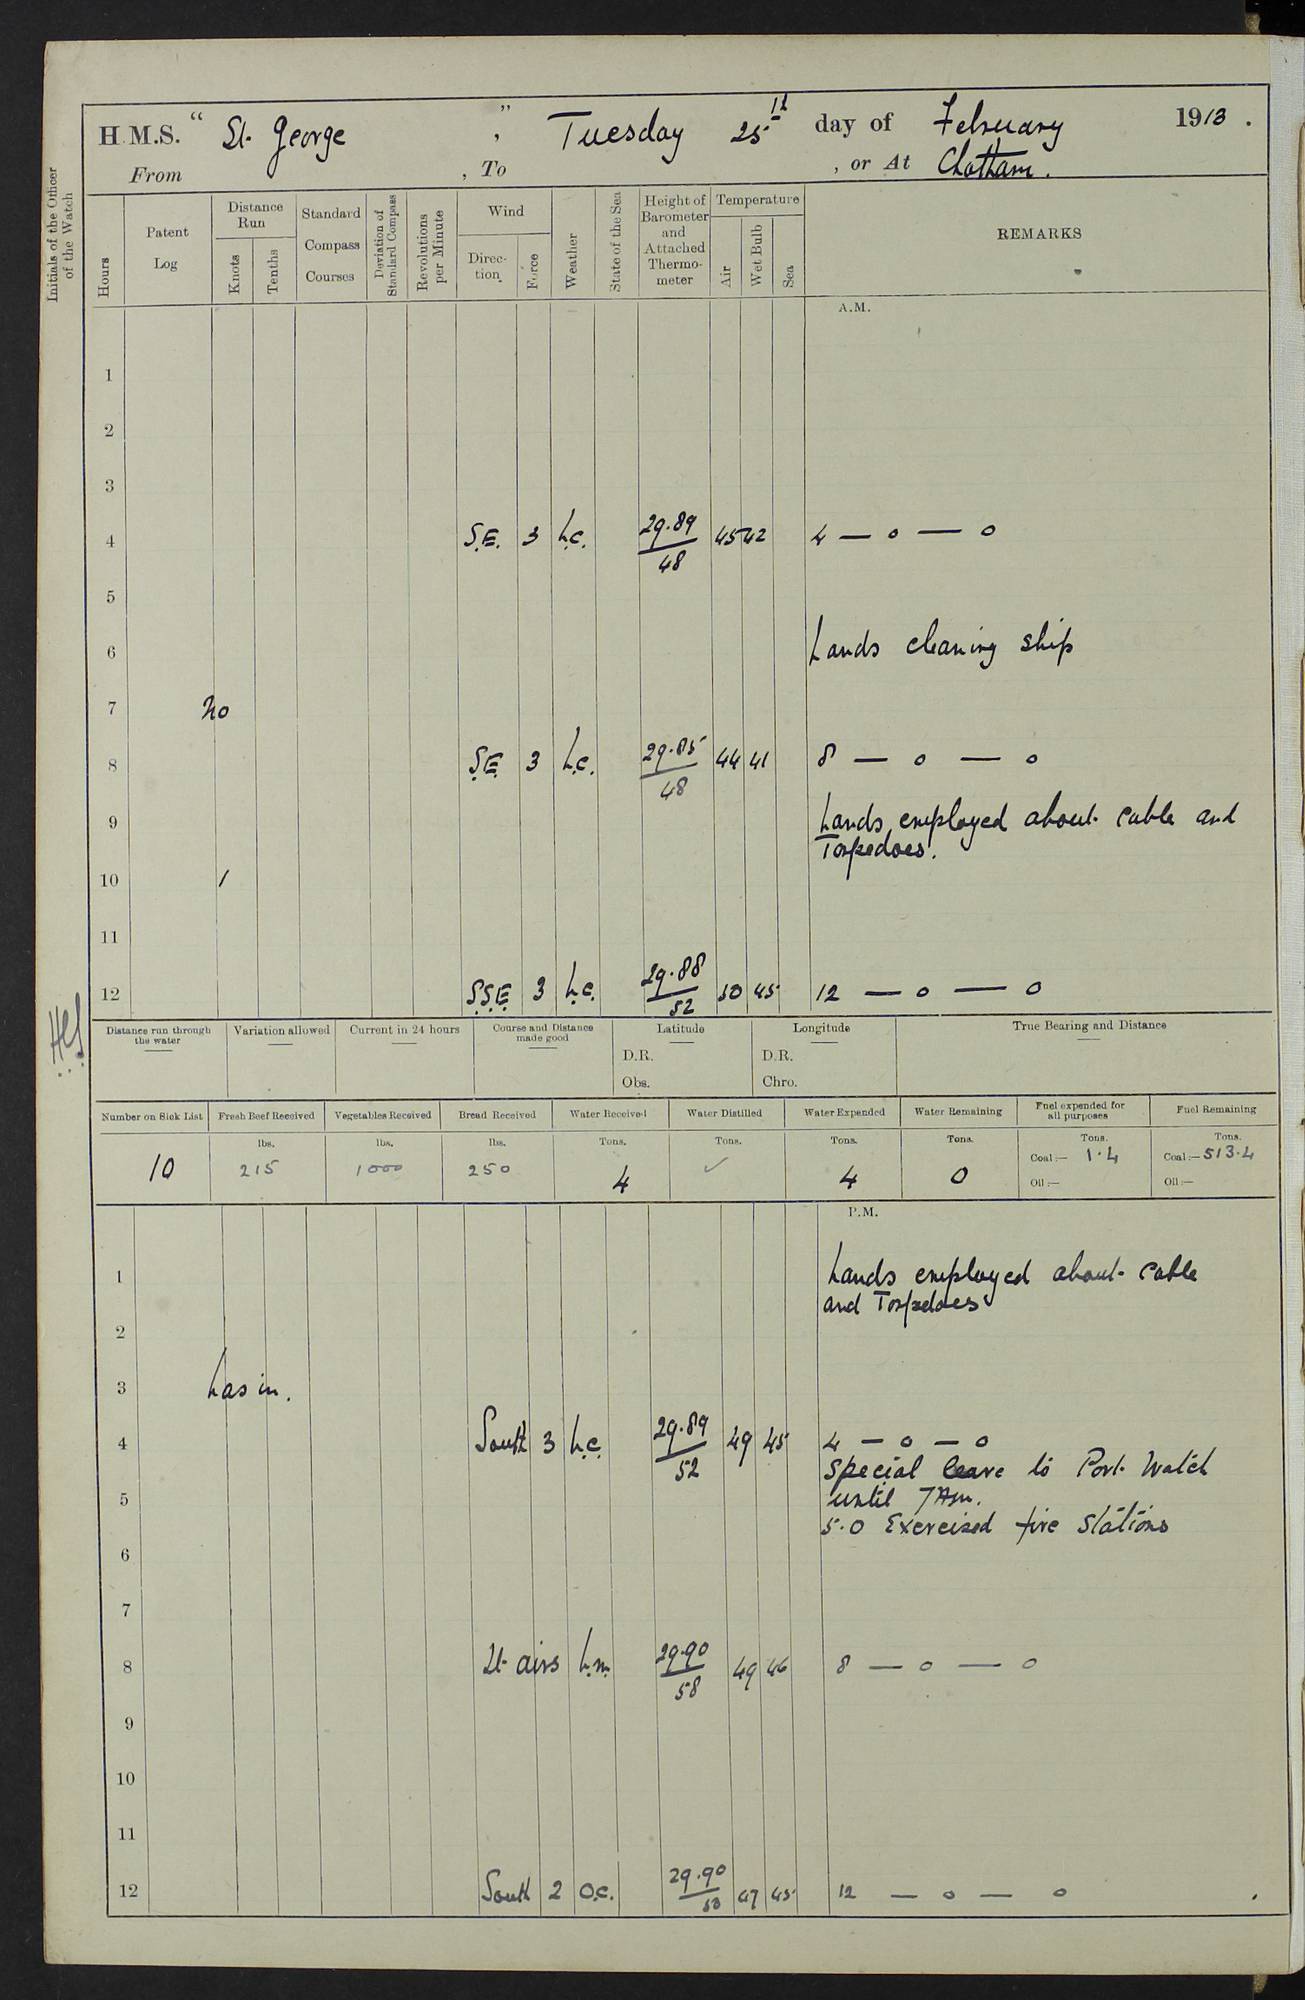 H.M.S. "St. George", Tuesday 25th day of February 1913.
From , To , or At Chatham.
Initials of the Officer of the Watch
Hours
Patent Log
Distance Run
Knots
Tenths
Standard Compass Courses
Deviation of Standard Compass
Revolutions per Minute
Wind
Direction
Force
Weather
State of the Sea
Height of Barometer and Attached Thermometer
Temperature
Air
Wet Bulb
Sea
REMARKS
A.M.
1
2
3
4 S.E. 3 b.c. 29.89/48 45 42 4 — o — o
5
6 hands cleaning ship
7 No
8 S.E. 3 b.c. 29.85/48 44 41 8 — o — o
9 hands employed about cable and
Torpedoes.
10 1
11
12 S.S.E. 3 b.c. 29.88/52 50 45 12 — o — o
Distance run through the water
Variation allowed
Current in 24 hours
Course and Distance made good
Latitude
D.R.
Obs.
Longitude
D.R.
Chro.
True Bearing and Distance
Number on Sick List
Fresh Beef Received
Vegetables Received
Bread Received
Water Received
Water Distilled
Water Expended
Water Remaining
Fuel expended for all purposes
Fuel Remaining
lbs. lbs. lbs. Tons. Tons. Tons. Tons. Tons. Tons.
10 215 1000 250 4 ✓ 4 0 Coal:— 1.4 Coal:— 513.4
Oil:— Oil:—
P.M.
1 hands employed about cable
and Torpedoes
2
3 has in.
4 South 3 b.c. 29.89/52 49 45 4 — o — o
Special leave to Port Watch
5 until 7 Am.
5.0 Exercised fire stations
6
7
8 Lt airs b.m. 29.90/58 49 46 8 — o — o
9
10
11
12 South 2 o.c. 29.90/53 47 45 12 — o — o